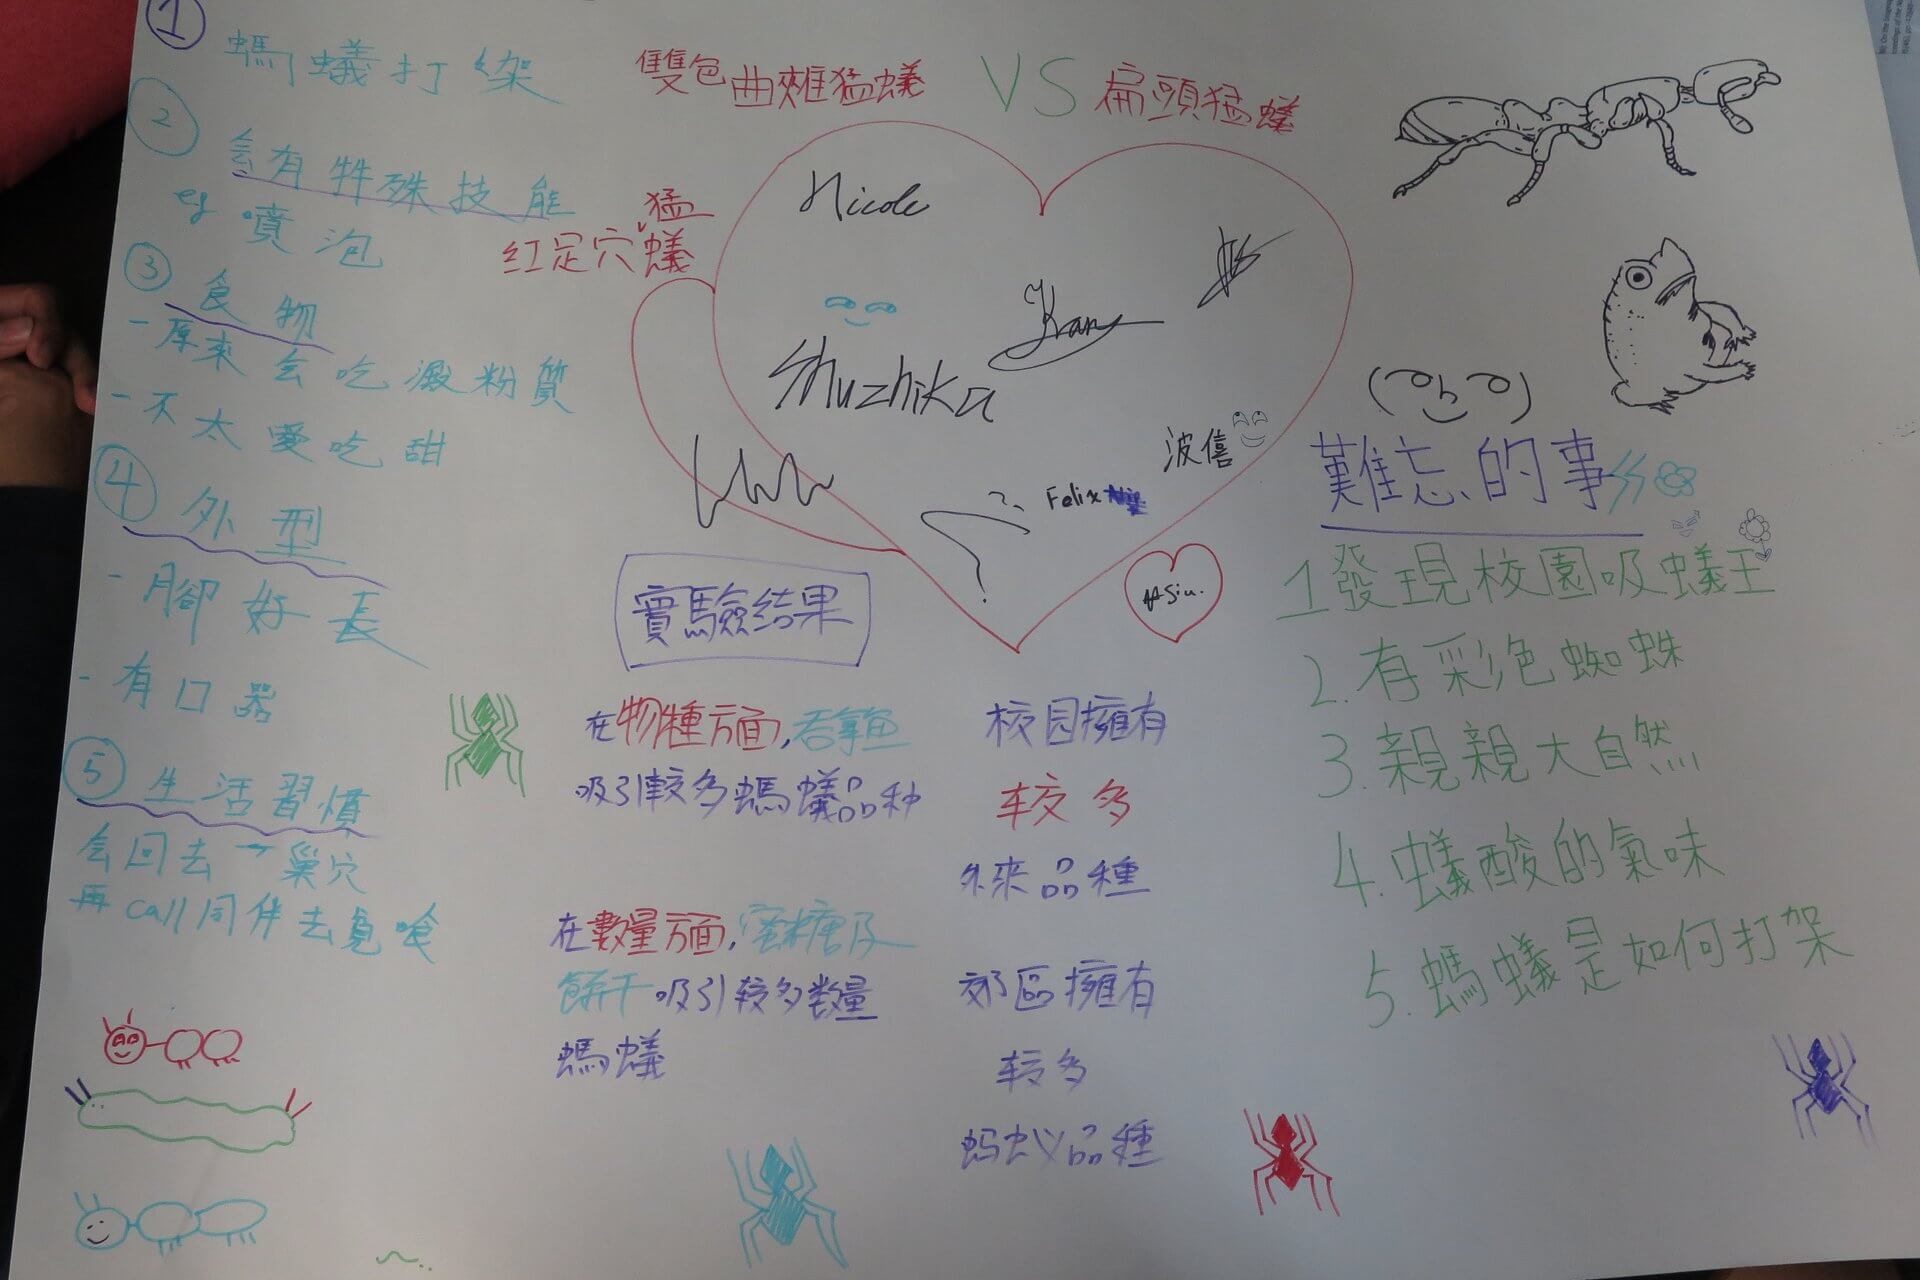 1
螞蟻打架
雙色曲顎猛蟻 VS 扁頭猛蟻
2
会有特殊技能
eg 噴泡
紅足穴猛蟻
3
食物
- 原來会吃澱粉質
- 不太愛吃甜
4
外型
- 腳好長
- 有口器
5 生活習慣
会回去 → 巢穴
再 call 同伴去覓喰
Nicole
Kan
Shuzhika
波僖
Felix
Siu.
實驗结果
在物種方面,吞拿魚
吸引較多螞蟻品种
在數量方面,蜜糖及
餅干吸引较多数量
螞蟻
校园擁有
较多
外來品種
郊區擁有
较多
蚂蚁品種
難忘的事
1 發現校園吸蟻王
2. 有彩色蜘蛛
3. 親親大自然
4. 蟻酸的氣味
5. 螞蟻是如何打架